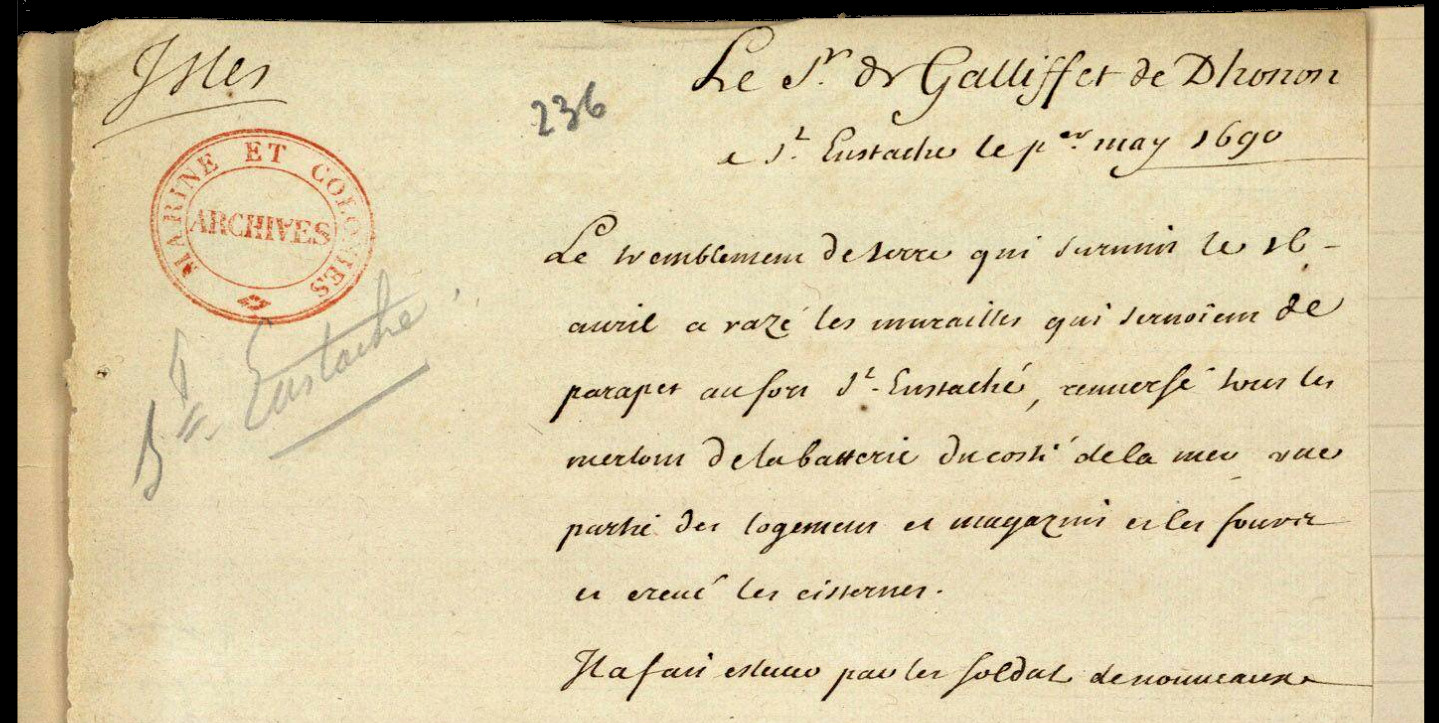 Isles
236
Le Sr. de Galliffet de Dhonon
a St. Eustache le per. may 1690
MARINE ET COLONIES
ARCHIVES
St. Eustache
Le tremblement de terre qui survint le 16 -
avril a razé les murailles qui servoient de
parapet au fort St. Eustaché, renversé tous les
merlons de la batterie du costé de la mer, une
partie des logemens et magazins et les fours
et crevé les cisternes.
Il a fait eslever par les soldats de nouveaux